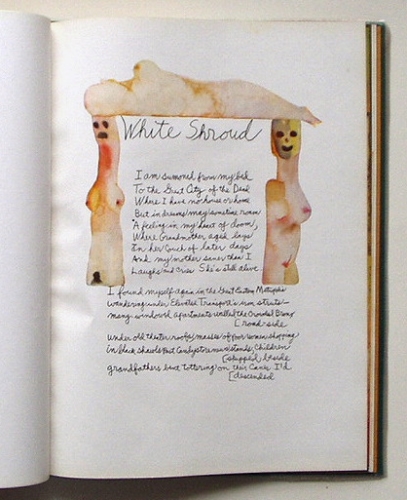 White Shroud
I am summond from my bed
To the Great City of the Dead
Where I have no house or home
But in dreams may sometime roam
A feeling in my heart of doom,
Where Grandmother aged lays
In her couch of later days
And my mother saner than I
Laughs and cries She's still alive
I found myself again in the Great Eastern Metropolis
wandering under Elevated Transport's iron struts—
many windowed apartments walled the crowded Bronx
[road-side
under old theater roofs, masses of poor women shopping
in black shawls past candy store newsstands, children
[skipped beside
grandfathers bent tottering on their canes. I'd
[descended